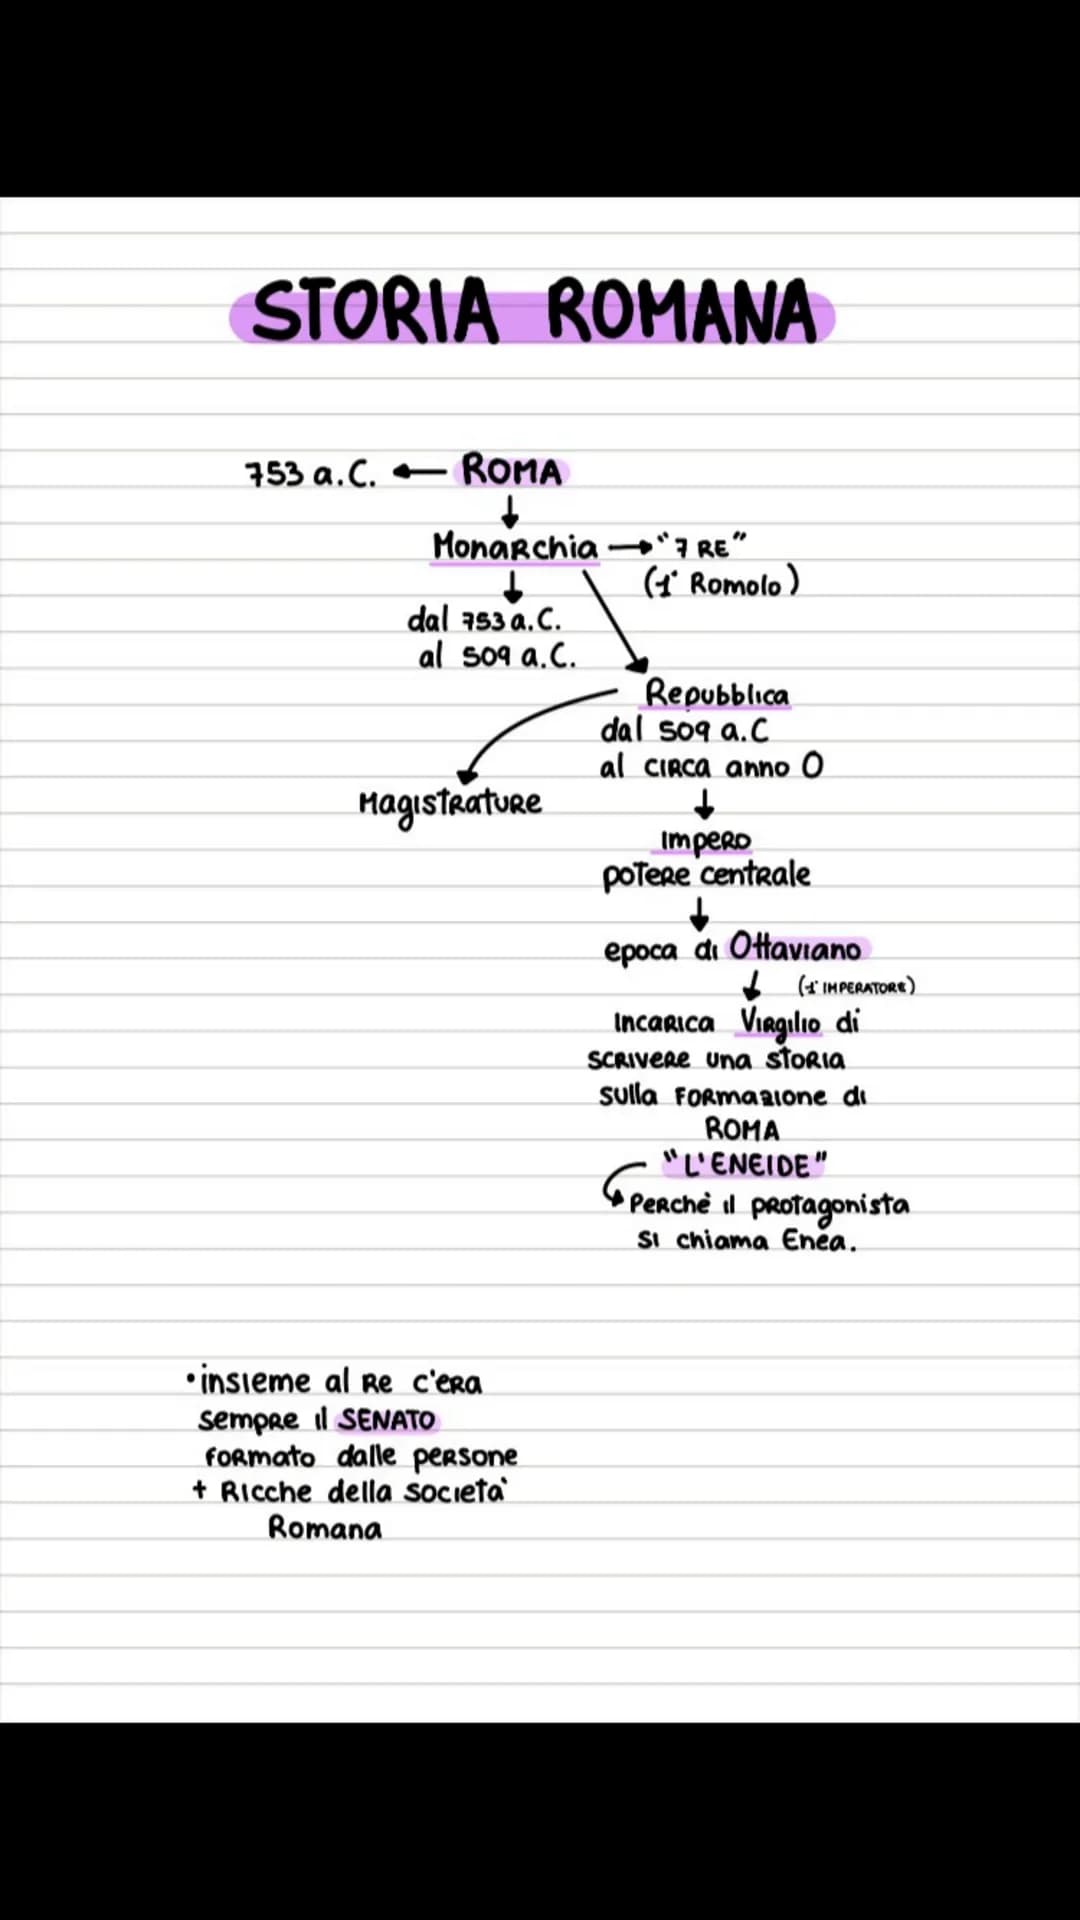 STORIA ROMANA
753 a.C. ← ROMA
↓
Monarchia → "7 RE"
(1° Romolo)
↓
dal 753 a.C.
al 509 a.C.
Repubblica
dal 509 a.C
al circa anno 0
Magistrature
↓
Impero
potere centrale
↓
epoca di Ottaviano
↓ (1° IMPERATORE)
Incarica Virgilio di
scrivere una storia
sulla formazione di
ROMA
"L'ENEIDE"
Perchè il protagonista
si chiama Enea.
• insieme al Re c'era
sempre il SENATO
formato dalle persone
+ Ricche della società
Romana